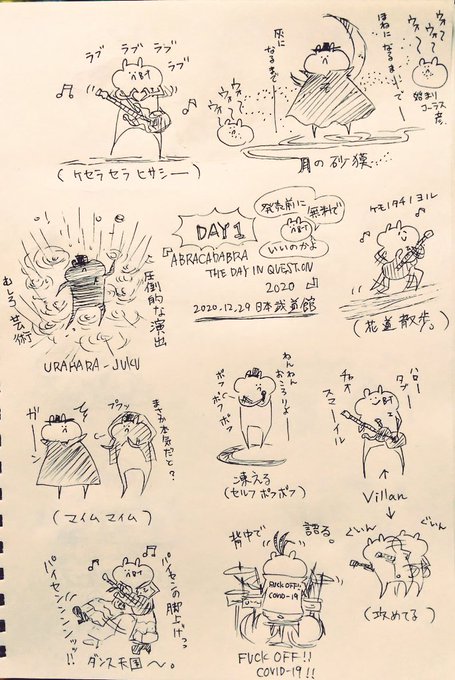 ラブ ラブ ラブ ラブ
(ケセラセラ ヒサシー)
灰になるまでー
ほねになるまーいでー
ウォ〜
ウォ〜
ウォ〜
ウォ〜
始まり
コーラス彦
月の砂漠
むしろ芸術
圧倒的な演出
URAHARA-JUKU
DAY 1
発売前に
無料で
いいのかよ
『ABRACADABRA
THE DAY IN QUESTION
2020』
2020.12.29 日本武道館
ケモノタチノヨル
(花道散歩。)
ガーン
プラッ
まさか本気だと?
(マイムマイム)
わんわん
おころりよー
ボッ ボッ ボッ
凍える
(セルフボンボッ)
ハロー
タッ
チャオ
スマーイル
Villan
ぐいん
ぐいん
(攻めてる)
パイセンの脚上げっっ
パイセンンンンッッ!!
ダンス天国〜。
背中で
語る。
FUCK OFF!!
COVID-19
FUCK OFF!!
COVID-19!!